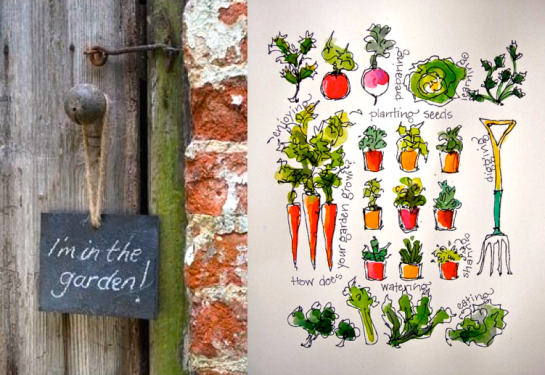 I'm in the
garden!
preparing
planting seeds
enjoying
digging
How does your garden grow?
sharing
watering
eating